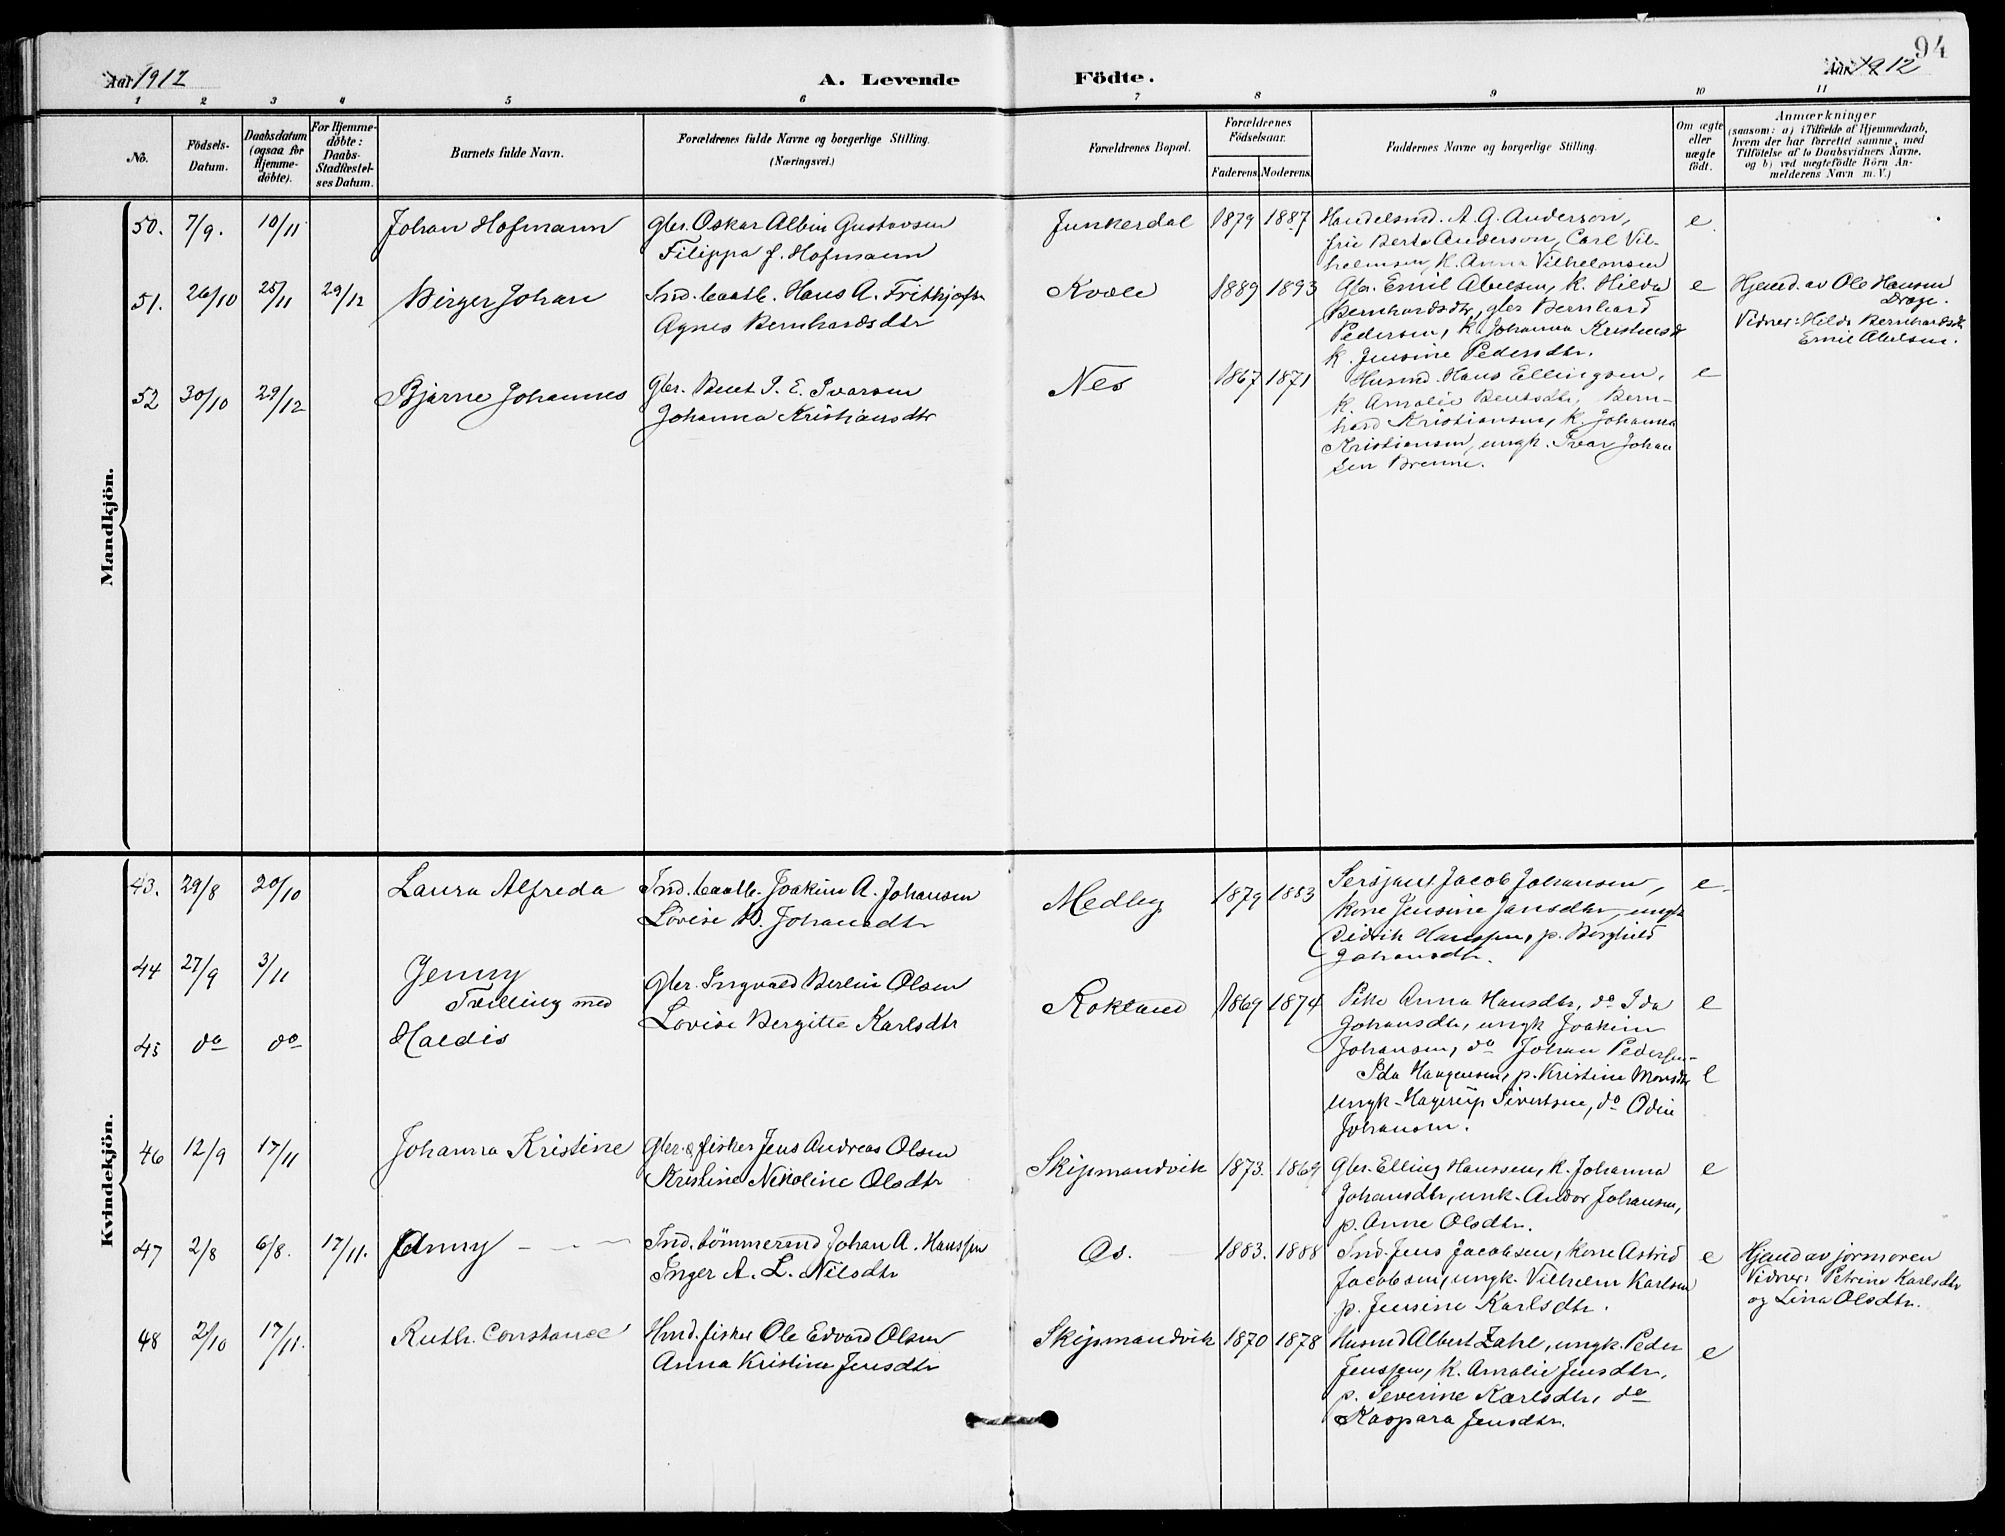 94
Aar 1912
A. Levende Födte.
Aar 1912
1 2 3 4 5 6 7 8 9 10 11
No.
Födsels-Datum.
Daabsdatum (ogsaa for Hjemme-döbte).
For Hjemme-döbte: Daabs-Stadfæstel-ses Datum.
Barnets fulde Navn.
Forældrenes fulde Navne og borgerlige Stilling.
(Næringsvei.)
Forældrenes Bopæl.
Forældrenes Födselsaar.
Faderens. Moderens.
Faddernes Navne og borgerlige Stilling.
Om ægte eller uægte födt.
Anmærkninger
(saasom: a) i Tilfælde af Hjemmedaab,
hvem der har forrettet samme, med
Tilföielse af to Daabsvidners Navne,
og b) ved uægtefödte Börn An-
melderens Navn m. V.)
Mandkjön.
50. 7/9. 10/11 Johan Hofmann
Gbr. Oskar Albin Gustavsen
Filippa f. Hofmann
Junkerdal 1879 1887
Handelsmd. A. G. Anderson,
frue Berta Anderson, Carl Vil-
helmsen, k. Anna Vilhelmsen
e.
51. 26/10 25/11 29/12 Birger Johan
Ind. Hans A. Frithjofsen
Agnes Bernhardsdtr
Kvæle 1889 1893
Gbr. Emil Abelsen, k. Hilda
Bernhardsdtr, gbr Bernhard
Pedersen, k. Johanna
k. Jensine Pedersdtr.
e
Hjemd. av Ole Hansen
Drage.
Vidner: Hilda Bernhardsdtr
Emil Abelsen.
52 30/10 29/12 Bjarne Johannes
Gbr. Bent P. E. Ivarsen
Johanna Kristiansdtr
Nes 1867 1871
Husmd. Hans Ellingsen,
k. Amalie Bentsdtr, Bern-
hard Kristiansen, k. Johanna
Kristiansen, ungk. Ivar Johan
sen Brenne.
e
Kvindekjön.
43. 29/8 20/10 Laura Alfreda
Ind. Joakim A. Johansen
Lovise B. Johansdtr
Medby 1879 1883
Sersjant Jacob Johansen,
Kone Jensine Jansdtr, ungk
Didrik Hanssen, p. Borghild
Johansdtr.
e.
44 27/9 3/11 Jenny
Tvilling med
Gbr. Ingvald Berlin Olsen
Lovise Bergitte Karlsdtr
Rokland 1869 1874
Pike Anna Hansdtr, do Ida
Johansdtr, ungk Joakim
Johansen, do Johan Pedersen
e
45 do do Haldis
Ida Haagensen, p. Kristine Monsdtr
ungk. Hagerup Sivertsen, do Odin
Johansen.
e
46 12/9 17/11 Johanna Kristine
Gbr. & fisker Jens Andreas Olsen
Kristine Nikoline Olsdtr
Skipmandvik 1873. 1869
Gbr. Elling Hanssen, k. Johanna
Johansdtr, unk. Andor Johansen,
p. Anne Olsdtr.
e
47 2/8 6/8. 17/11. Anny
Ind. tömmermd Johan A. Hanssen
Inger A. L. Nilsdtr
Os. 1883. 1888
Ind. Jens Jacobsen, kone Astrid
Jacobsen, ungk. Vilhelm Karlsen
p. Jensine Karlsdtr.
e
Hjemd av jormoren
Vidner: Petrine Karlsdtr
og Lina Olsdtr.
48 2/10 17/11. Ruth Constance
Hmd. fisker Ole Edvard Olsen
Anna Kristine Jensdtr
Skipmandvik 1870 1878
Husmd Albert Zahl, ungk. Peder
Jenssen, k. Amalie Jensdtr,
p. Severine Karlsdtr, do
Kaspara Jensdtr.
e